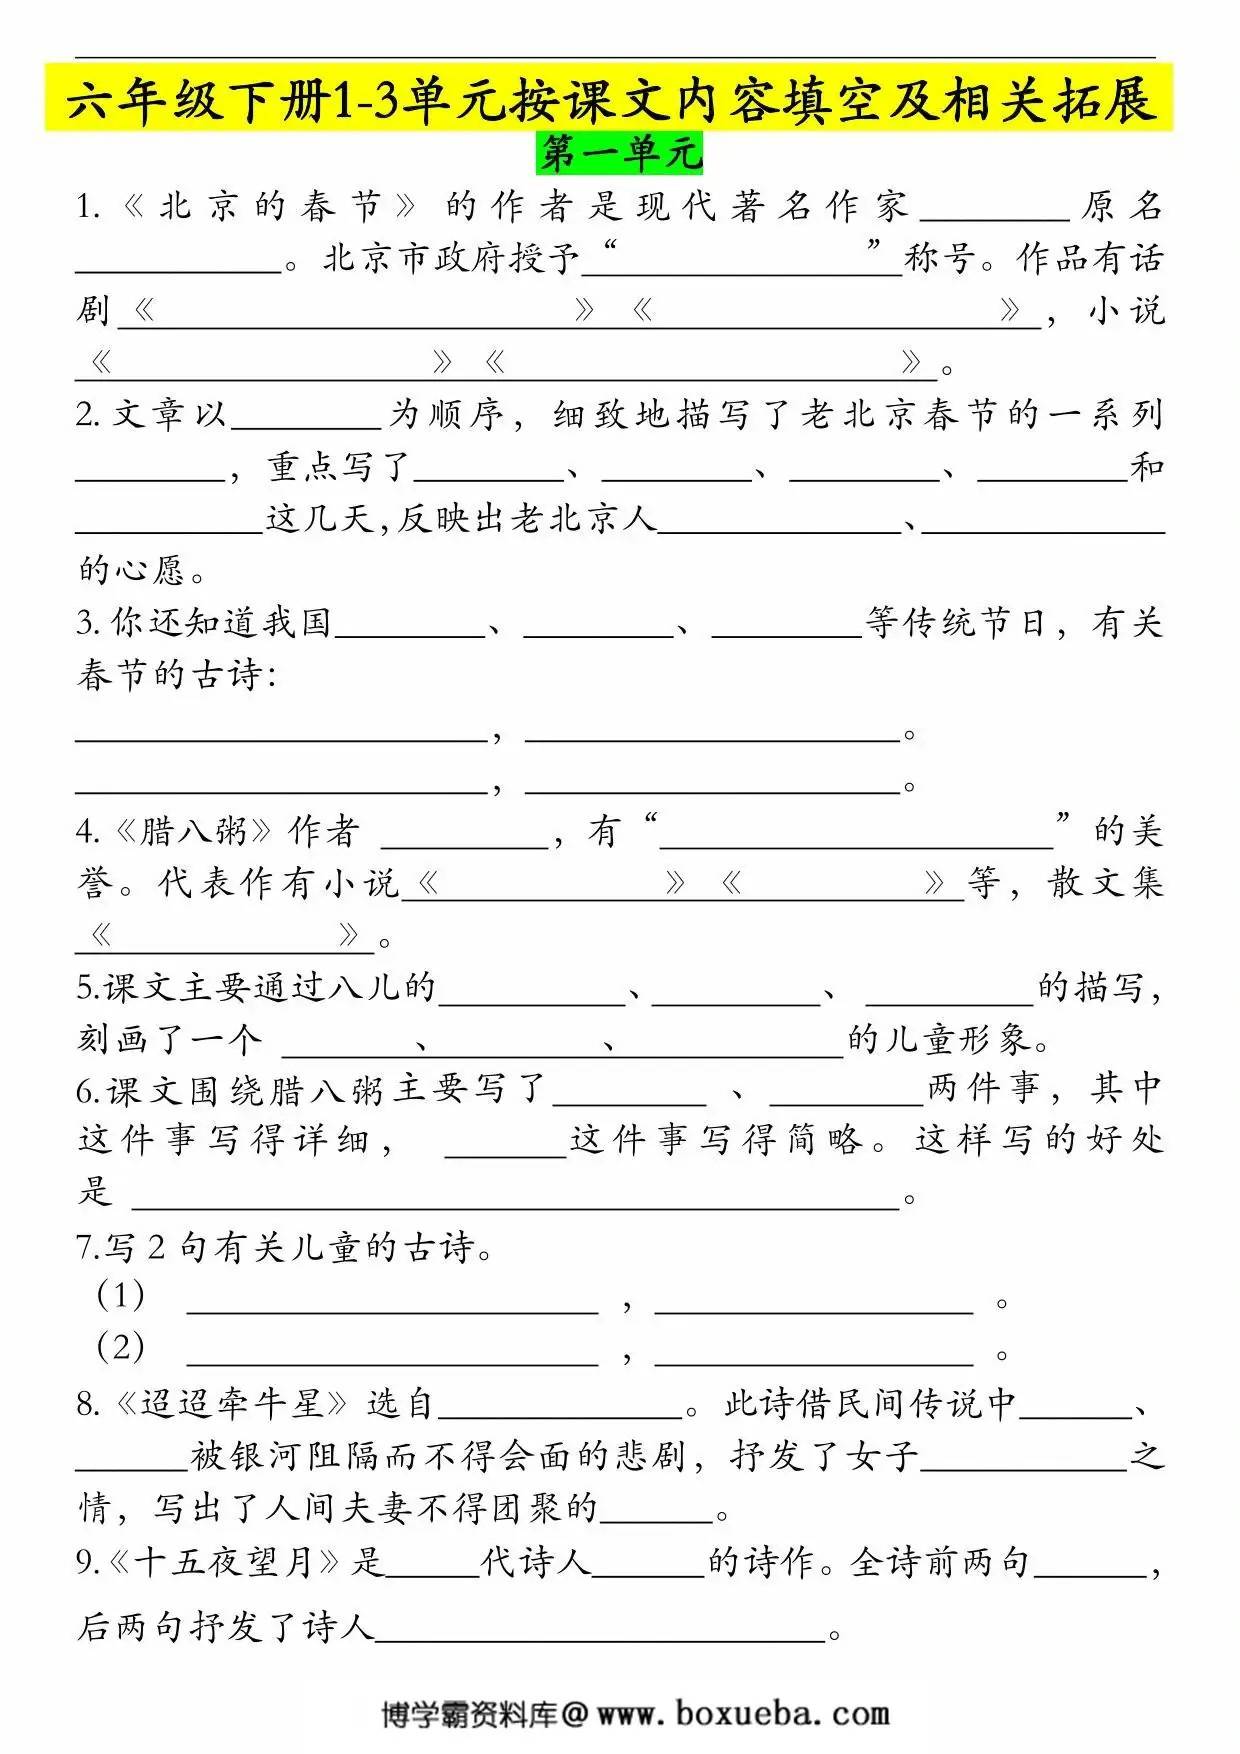 六年级下册1-3单元按课文内容填空及相关拓展
第一单元
1.《北京的春节》的作者是现代著名作家________原名
___________。北京市政府授予“_________________”称号。作品有话
剧《______________________》《___________________》，小说
《_________________》《_____________________》。
2.文章以________为顺序，细致地描写了老北京春节的一系列
________，重点写了________、________、________、________和
__________这几天,反映出老北京人_____________、_____________
的心愿。
3.你还知道我国________、________、________等传统节日，有关
春节的古诗：
______________________，____________________。
______________________，____________________。
4.《腊八粥》作者 _________，有“_____________________”的美
誉。代表作有小说《____________》《__________》等，散文集
《____________》。
5.课文主要通过八儿的__________、_________、 _________的描写，
刻画了一个 _______、_________、____________的儿童形象。
6.课文围绕腊八粥主要写了________ 、________两件事，其中
这件事写得详细， ______这件事写得简略。这样写的好处
是 _________________________________________。
7.写 2 句有关儿童的古诗。
（1） ______________________ ，_________________ 。
（2） ______________________ ，_________________ 。
8.《迢迢牵牛星》选自_____________。此诗借民间传说中______、
______被银河阻隔而不得会面的悲剧，抒发了女子___________之
情，写出了人间夫妻不得团聚的______。
9.《十五夜望月》是_____代诗人______的诗作。全诗前两句______，
后两句抒发了诗人________________________。
博学霸资料库@www.boxueba.com